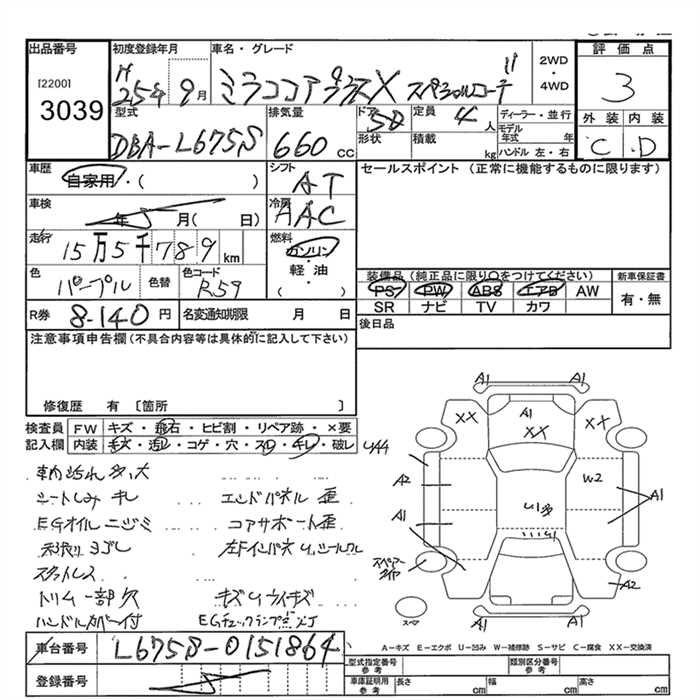 出品番号
[2200]
3039
初度登録年月
H 25年 9月
車名・グレード
ミラココアプラスX スペシャルコーデ
2WD
・
4WD
評価点
3
外装 内装
C . D
型式
DBA-L675S
排気量
660 CC
ドア
5D
形状
定員
4 人
積載
kg
ディーラー・並行
モデル年式 年
ハンドル 左・右
車歴
自家用・( )
シフト
AT
車検
年 月( 日)
冷房
AAC
走行
15万5千789 km
燃料
ガソリン
・
軽油
・
( )
色
パープル
色替
色コード
R59
R券
8-140 円
名変通知期限 月 日
セールスポイント（正常に機能するものに限ります）
装備品（純正品に限り○をつけてください）
PS PW ABS エアB AW
SR ナビ TV カワ
新車保証書
有・無
後日品
注意事項申告欄(不具合内容等は具体的に記入して下さい)
修復歴 有 〔箇所 〕
検査員記入欄
FW キズ・飛石・ヒビ割・リペア跡・×要
内装 キズ・汚レ・コゲ・穴・スレ・キレ・破レ
車内汚れ キズ 大
シートしみ キレ
エンドパネル 歪
EGオイル ニジミ
コアサポート 歪
ヨゴレ
スタットレス
トリム一部欠
キズUウイキズ
ハンドルカバー付
EGチェックランプ点灯
A1 A1
XX A1 XX
XX
A2 W2
A1 U1多 A1
U1
スペアータイヤ
A2
スペア
A1 A1
A－キズ E－エクボ U－凹み W－補修跡 S－サビ C－腐食 XX－交換済
車台番号
L675S-0151864
登録番号
型式指定番号
参考
類別区分番号
参考
車庫証明用
参考
長さ cm
幅 cm
高さ cm